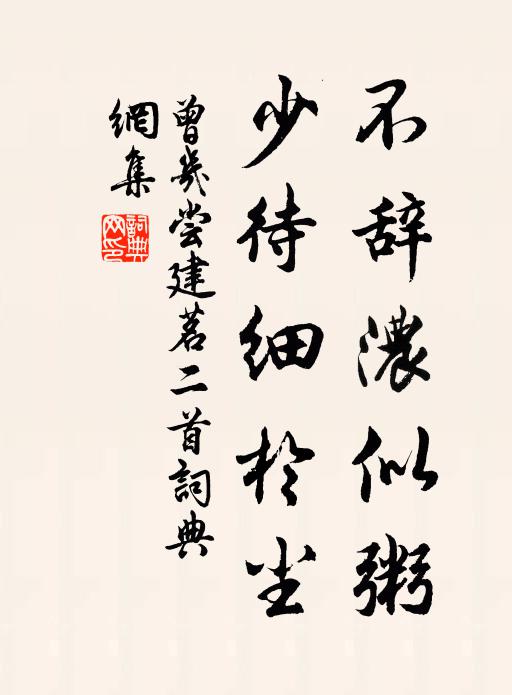 不辞濃似粥
少待细於尘
曾幾尝建茗二首詞典
網集
詞典
网印